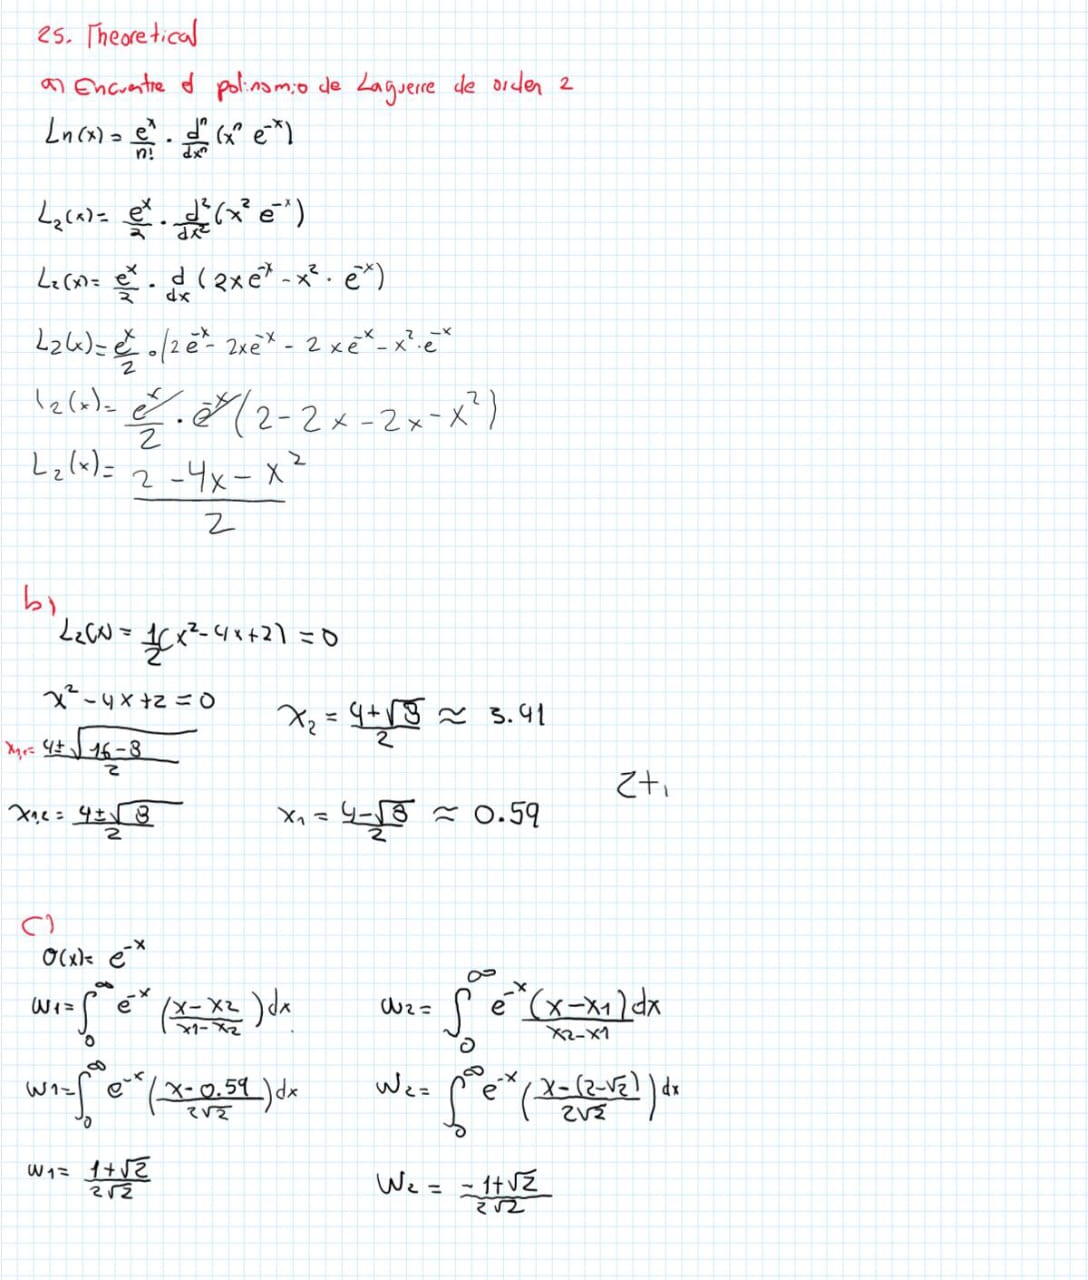 25. Theoretical
a) Encuentre el polinomio de Laguerre de orden 2
Ln(x) = e^x/n! · d^n/dx^n (x^n e^-x)
L₂(x) = e^x/2 · d²/dx² (x² e^-x)
L₂(x) = e^x/2 · d/dx (2xe^-x - x² · e^-x)
L₂(x) = e^x/2 · (2e^-x - 2xe^-x - 2xe^-x - x² · e^-x
L₂(x) = e^x/2 · e^-x (2 - 2x - 2x - x²)
L₂(x) = (2 - 4x - x²)/2
b)
L₂(x) = 1/2(x² - 4x + 2) = 0
x² - 4x + 2 = 0
x₂ = (4+√8)/2 ≈ 3.41
(4±√16-8)/2
2+1
x₁,₂ = (4±√8)/2
x₁ = (4-√8)/2 ≈ 0.59
c)
O(x) = e^-x
w1 = ∫₀^∞ e^-x ((x-x2)/(x1-x2)) dx
w2 = ∫₀^∞ e^-x ((x-x1)/(x2-x1)) dx
w1 = ∫₀^∞ e^-x ((x-0.59)/(2√2)) dx
w2 = ∫₀^∞ e^-x ((x-(2-√2))/(2√2)) dx
w1 = (1+√2)/(2√2)
w2 = (-1+√2)/(2√2)